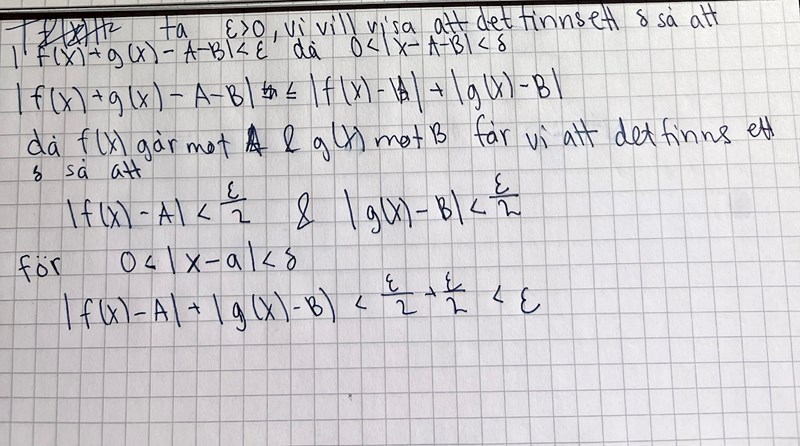 ta ε>0, vi vill visa att det finns ett δ så att
|f(x)+g(x)-A-B|<ε då 0<|x-A-B|<δ
|f(x)+g(x)-A-B| ≤ |f(x)-A|+|g(x)-B|
då f(x) går mot A & g(x) mot B får vi att det finns ett
δ så att
|f(x)-A|<ε/2 & |g(x)-B|<ε/2
för 0<|x-a|<δ
|f(x)-A|+|g(x)-B) < ε/2+ε/2 < ε